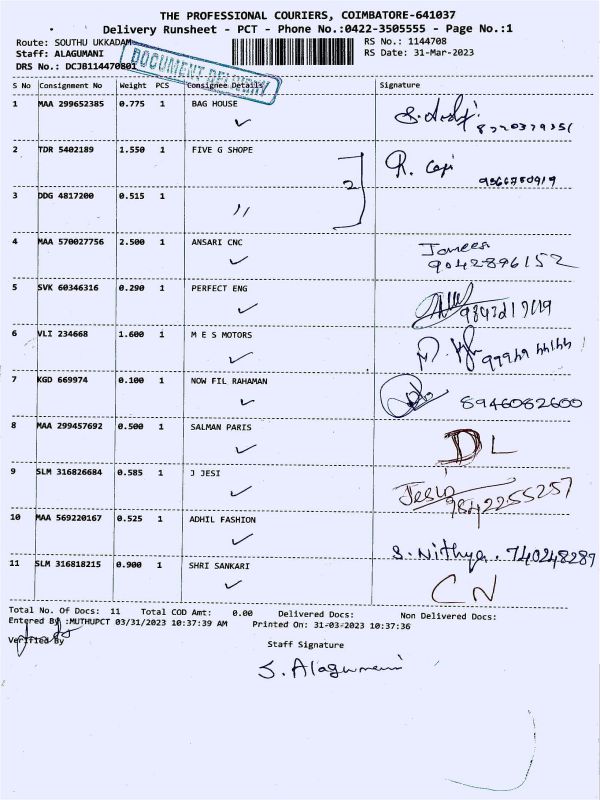 THE PROFESSIONAL COURIERS, COIMBATORE-641037
Delivery Runsheet - PCT - Phone No.:0422-3505555 - Page No.:1
Route: SOUTHU UKKADAM RS No.: 1144708
Staff: ALAGUMANI RS Date: 31-Mar-2023
DRS No.: DCJB114470801
DOCUMENT DELIVERY
S No Consignment No Weight PCS Consignee Details Signature
1 MAA 299652385 0.775 1 BAG HOUSE
2 TDR 5402189 1.550 1 FIVE G SHOPE
2
3 DDG 4817200 0.515 1 〃
4 MAA 570027756 2.500 1 ANSARI CNC
9042896152
5 SVK 60346316 0.290 1 PERFECT ENG
6 VLI 234668 1.600 1 M E S MOTORS
7 KGD 669974 0.100 1 NOW FIL RAHAMAN
8946082600
8 MAA 299457692 0.500 1 SALMAN PARIS DL
9 SLM 316826684 0.585 1 J JESI
9842255257
10 MAA 569220167 0.525 1 ADHIL FASHION
S. Nithya. 740248289
11 SLM 316818215 0.900 1 SHRI SANKARI CN
Total No. Of Docs: 11 Total COD Amt: 0.00 Delivered Docs: Non Delivered Docs:
Entered By :MUTHUPCT 03/31/2023 10:37:39 AM Printed On: 31-03-2023 10:37:36
Verified By Staff Signature
S. Alagumani